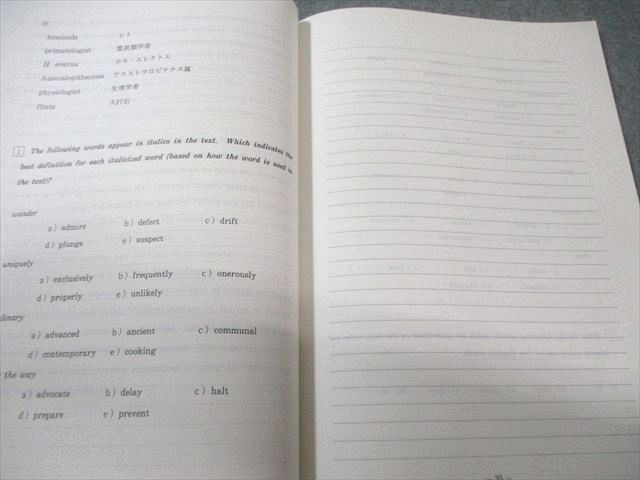 注
hominids ヒト
primatologist 霊長類学者
H. erectus ホモ・エレクトス
Australopithecines アウストラロピテクス属
physiologist 生理学者
flints 火打石
1 The following words appear in italics in the text. Which indicates the
best definition for each italicized word (based on how the word is used in
the text)?
wander
a) admire b) defect c) drift
d) plunge e) suspect
uniquely
a) exclusively b) frequently c) onerously
d) properly e) unlikely
linary
a) advanced b) ancient c) communal
d) contemporary e) cooking
the way
a) advocate b) delay c) halt
d) prepare e) prevent